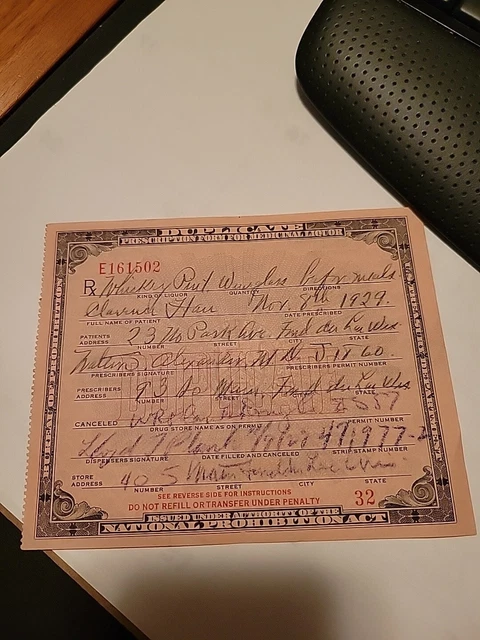 DUPLICATE
PRESCRIPTION FORM FOR MEDICINAL LIQUOR
E161502
Rx Whiskey Pint Wineglass before meals
KIND OF LIQUOR QUANTITY DIRECTIONS
Clarence Nov. 8th 1929.
FULL NAME OF PATIENT DATE PRESCRIBED
PATIENTS ADDRESS 23 No Park Ave. Fond du Lac Wis
NUMBER STREET CITY STATE
Alexander M.D.
PRESCRIBERS SIGNATURE PERMIT NUMBER
PRESCRIBERS ADDRESS So Main Fond du Lac Wis
NUMBER STREET CITY STATE
CANCELED
DRUG STORE NAME AS ON PERMIT PERMIT NUMBER
Lloyd
DISPENSERS SIGNATURE DATE FILLED AND CANCELED STRIP STAMP NUMBER
STORE ADDRESS 40 S Main Fond du Lac Wis
NUMBER STREET CITY STATE
SEE REVERSE SIDE FOR INSTRUCTIONS
DO NOT REFILL OR TRANSFER UNDER PENALTY 32
ISSUED UNDER AUTHORITY OF THE
NATIONAL PROHIBITION ACT